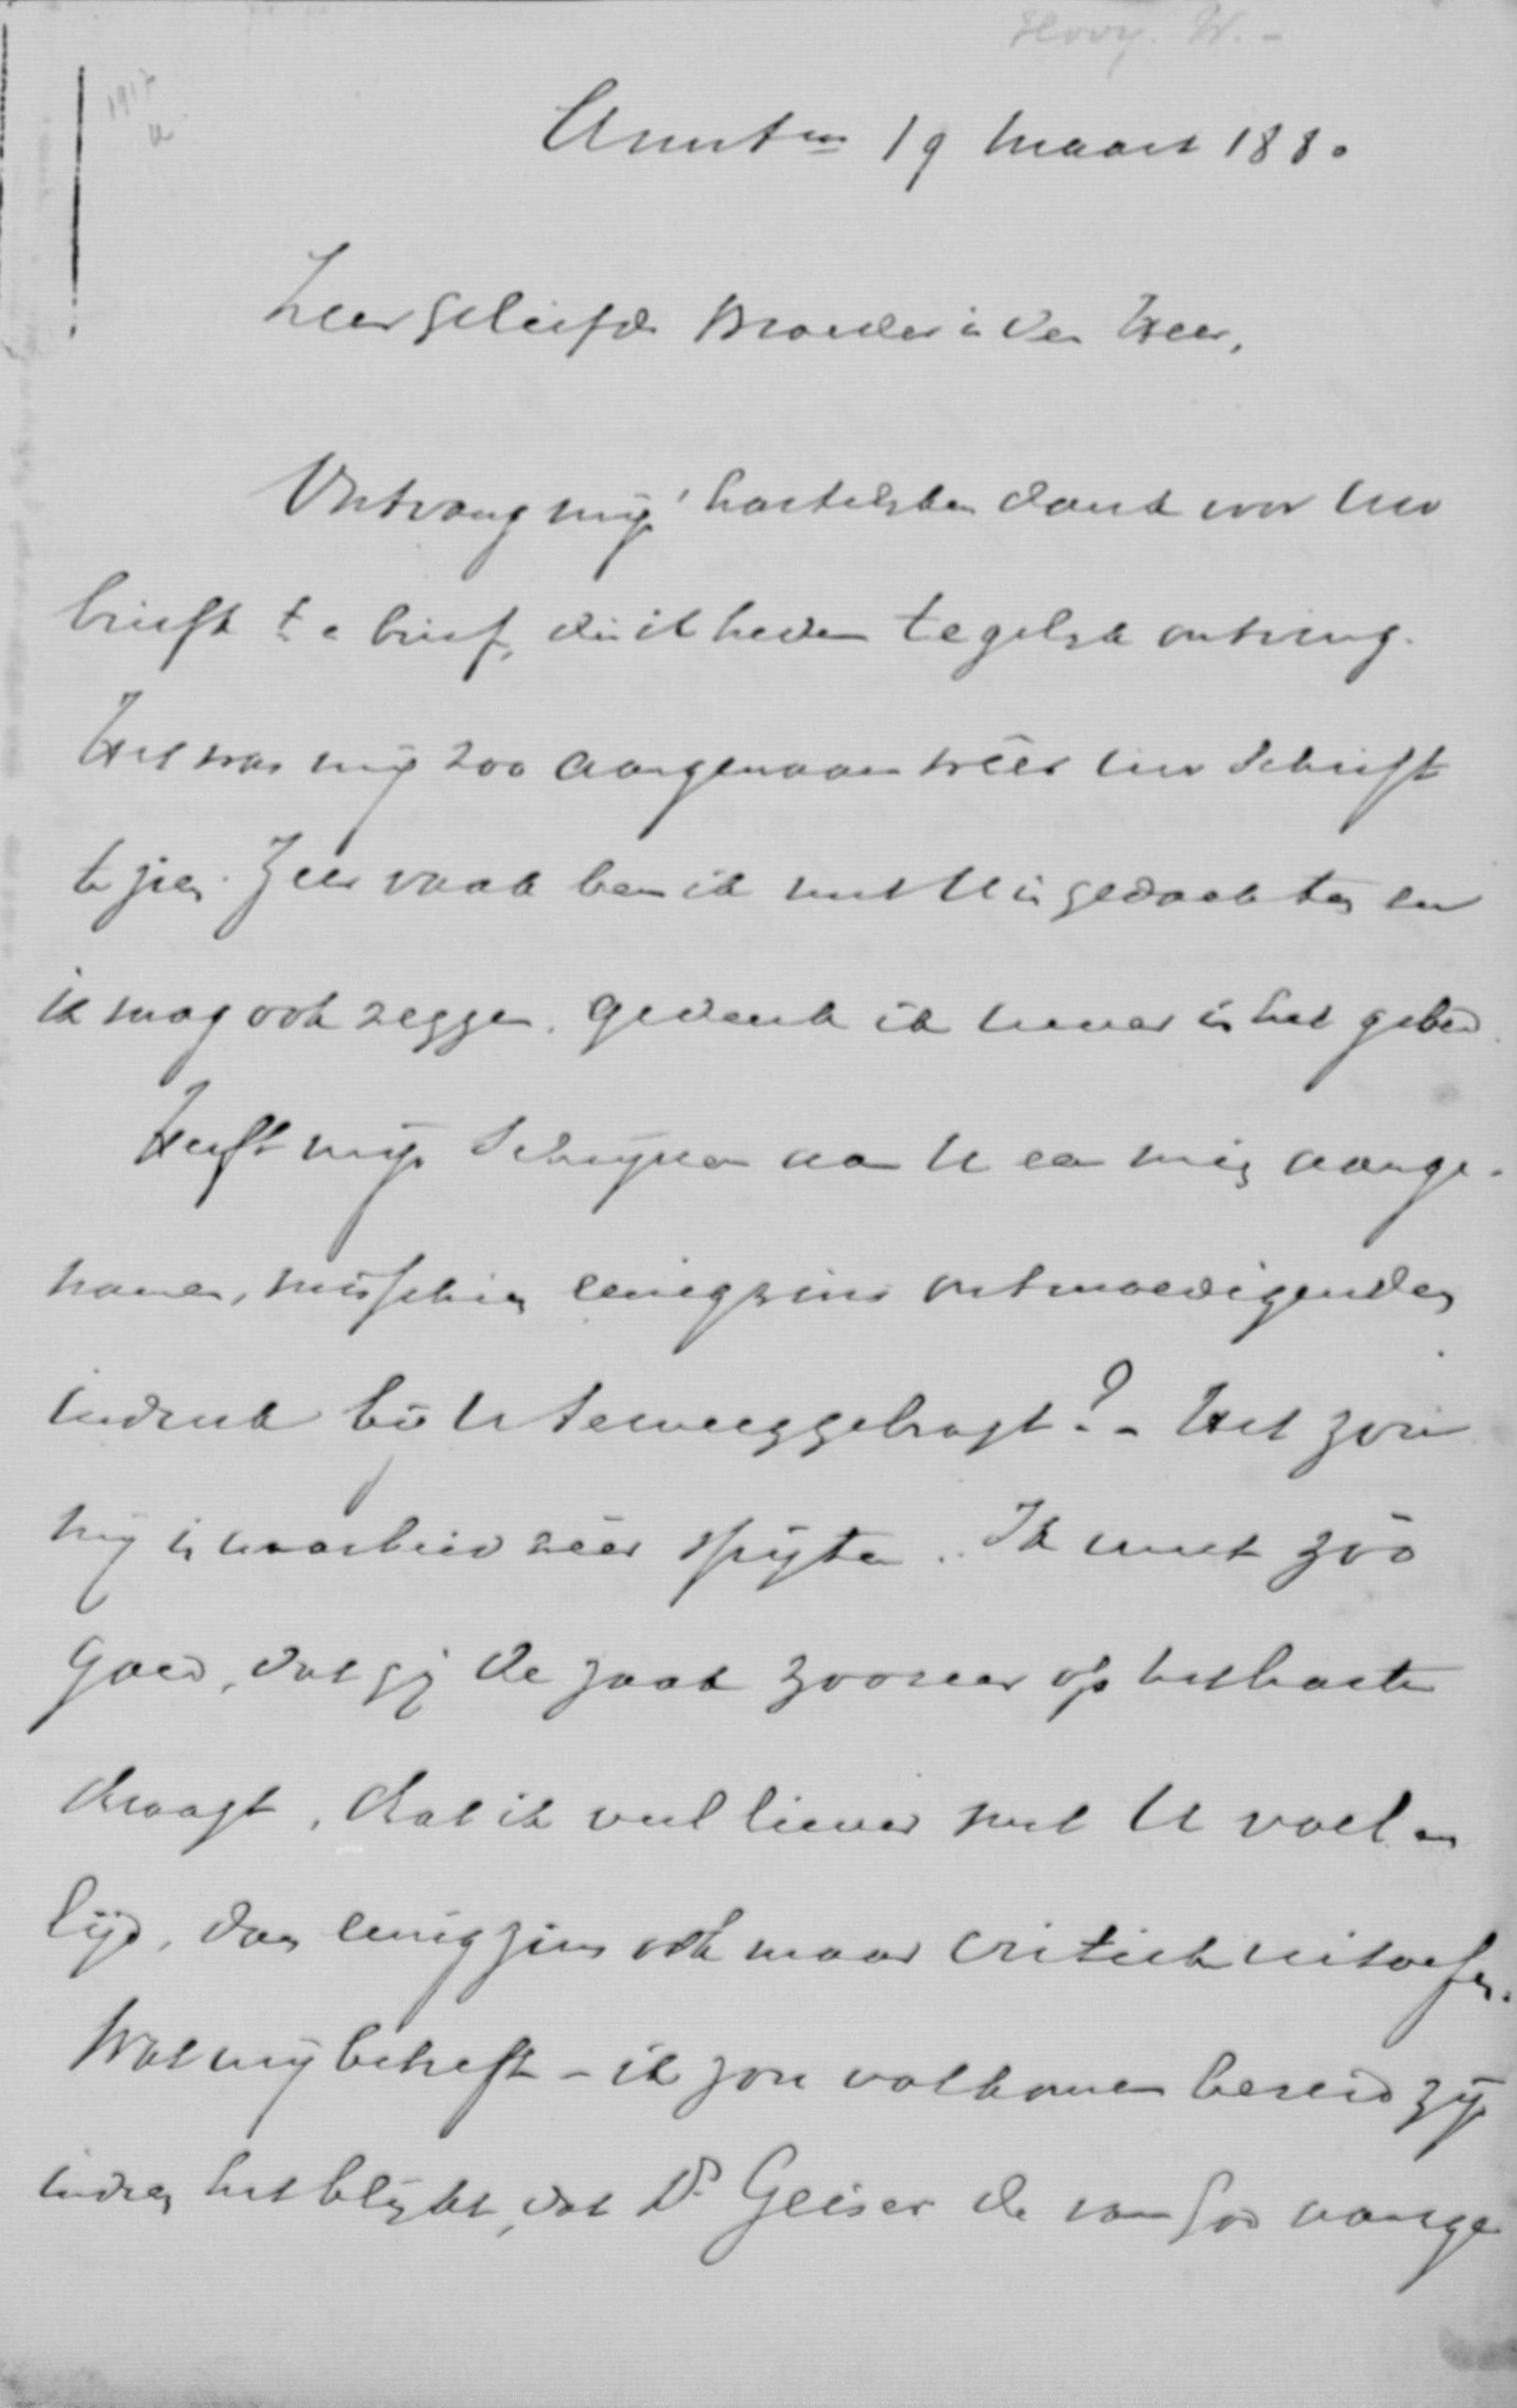 Hovy. W. -
1917
Amstm 19 Maart 1880
Zeer geliefde Broeder in den Heer,
Ontvang mijn hartelijken dank voor uw
briefk & brief, die ik heden tegelijk ontving.
Het was mij zoo aangenaam wéér uw schrift
te zien. Zeer vaak ben ik met U in gedachten en
ik mag ook zeggen. gedenk ik Uwer in het gebed.
Heeft mijn schrijven aan U een min aange-
namen, misschien eenigzins ontmoedigenden
indruk bij U teweeggebragt? - Het zou
mij in waarheid zéér spijten. Ik weet zóó
goed, dat gij de zaak zoozeer op het harte
draagt, dat ik veel liever met U voel en
lijd, dan eenigzins ook maar critiek uitoefen.
Wat mij betreft - ik zou volkomen bereid zijn
indien het blijkt, dat Dr Geiser de van God aange